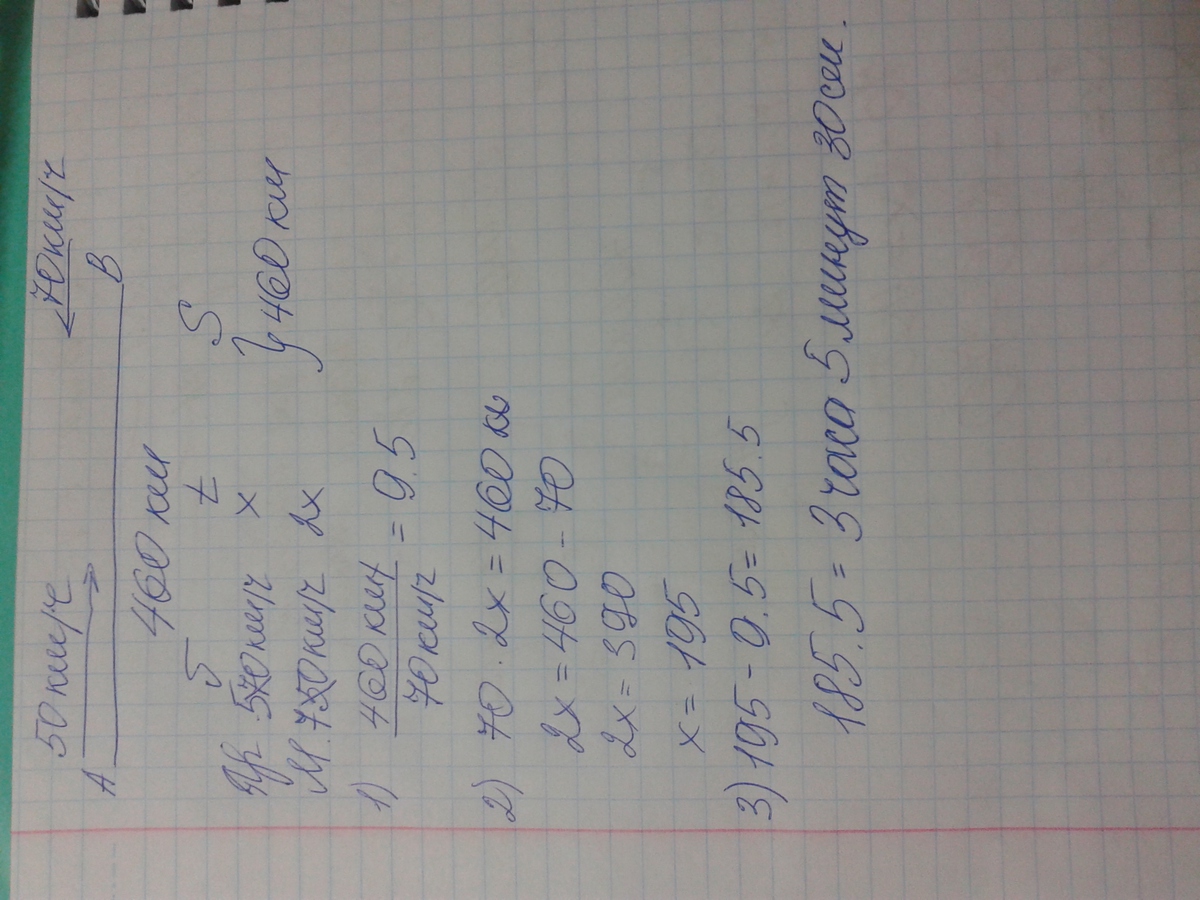 50 км/ч 70 км/ч
A B
460 км
V t S
Гр. 50 км/ч x } 460 км
М. 70 км/ч 2x
1) 460 км / 70 км/ч = 9.5
2) 70 · 2x = 460 км
2x = 460 - 70
2x = 390
x = 195
3) 195 - 9.5 = 185.5
185.5 = 3 часа 5 минут 30 сек.